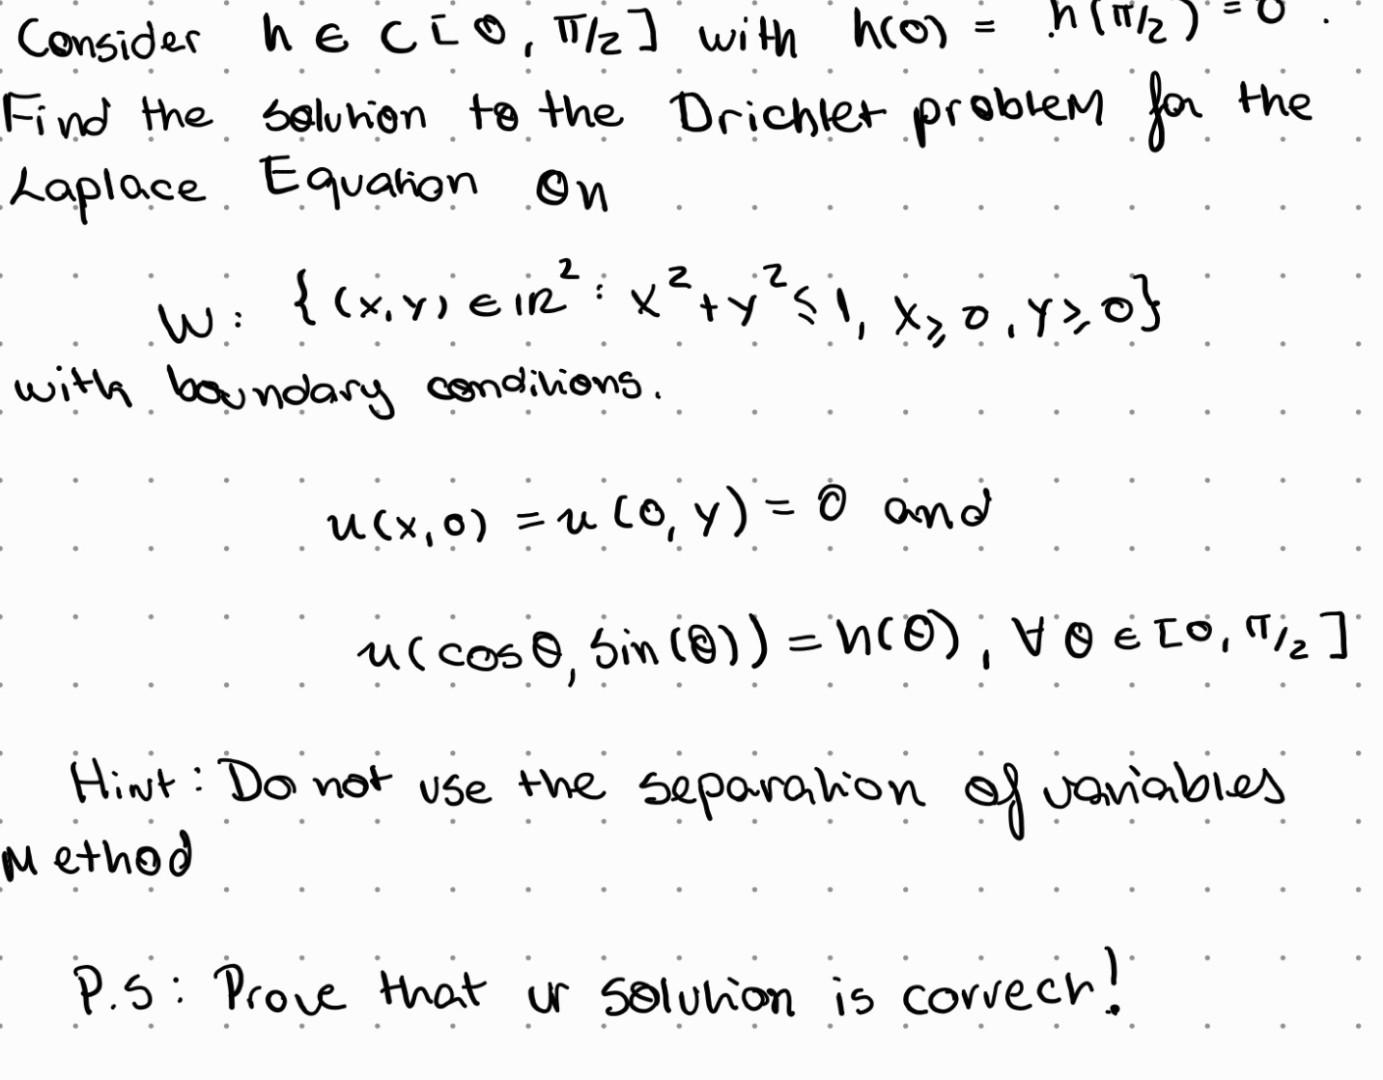 Consider h ∈ C[0, π/2] with h(0) = h(π/2) = 0.
Find the solution to the Drichlet problem for the
Laplace Equation On
W: {(x,y) ∈ IR²: x²+y² ≤ 1, x ≥ 0, y ≥ 0}
with boundary conditions.
u(x,0) = u(0,y) = 0 and
u(cosθ, sin(θ)) = h(θ), ∀ θ ∈ [0, π/2]
Hint: Do not use the separation of variables
Method
P.S: Prove that ur solution is correct!